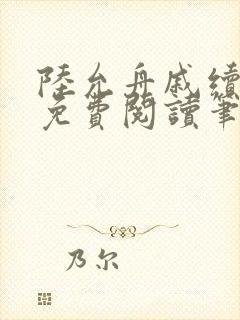 陸允舟戚續
免費閱讀筆
乃尔